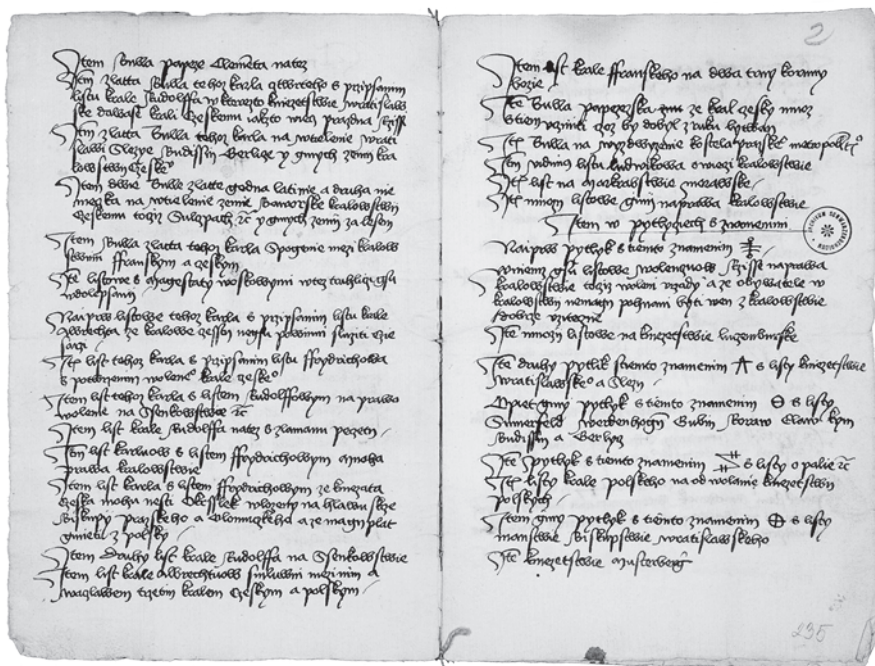 Item Bulla papeze Clementa natez
Item zlatta Bulla tehoz karla cztwrteho s przipsanim
listu krale Rudolffa w kterezto kniezetstwie wratislaw
ske dawasse krali Czeskemu iakzto wiecz prazdna Rzissi
Item zlatta Bulla tehoz karla na wtielenie wrati
slawi Slezye Budissin Gerlicze y gynych zemi kra
lowstwy czeske°
Item dwie Bulle zlatte gedna latinie a druha nie
mezka na wtielenie zemie Baworske kralowstwi
Czeskemu toziz Sulzpach etc y gynych zemi za lesem
Item Bulla zlatta tehoz karla Spogenie mezi kralow
stwim ffranskym a czeskym
Ite listowe s magestaty woskowymi
Naiprw listowe tehoz karla s przipsanim listu krale
Albrechta ze kralowe czessti negsu powinni sluziti czie
sarzi
Ite list tehoz karla s przipsanim listu ffrydrichowa
s potwrzenim wolene° krale czeske°
Item list tehoz karla s listem Rudolffowym na prawo
wolenie na Ssenkowstwie etc
Item list krale Rudolffa natez s zlamanu peczeti
Item list karluow s listem ffrydrichowym a mnoha
prawa kralowstwie
Item list karla s listem ffrydrichowym ze kniezata
czeska mohu nesti wlozeny na hlawu skrze
Biskupy Prazskeho a Olomuczkeho a ze magi plat
gmieti z polsky
Item druhy list krale Rudolffa na Ssenkowstwie
Item list krale Albrechtuow smluwni mezi nim a
waczlawem trzetim kralem czeskym a polskym
2
Item list krale ffranskeho na dwa trny koruny
bozie
Ite Bulla papezska ze kral czesky muoz
wzieti coz by dobyl z ruku
Ite Bulla na wyzdwizenie kostela prazske° metropolit
Item vidimus listu ludwikowa o mezi kralowstwie
Ite list na Margkrabstwie morawske
Ite mnozi listowe gini na prawa kralowstwie
Item w pytlyczech s znamenim
Naiprw pytlyk s tiemto znamenim
w niemz gsu listowe wolenczuow Rzisse na prawa
kralowstwie toziz woleni vrzady a ze obywatele w
kralowstwi nemagi pohnani byti wen z kralowstwie
dobrze vziteczne
Ite mnozi listowe na kniezetstwie luczenburske
Ite druhy pytlik s tiemto znamenim s listy kniezetstwie
wratislawske° a Slezy
Opiet giny pytlyk s tiemto znamenim s listy
Sumerfeld Gubin Zoraw
Budissin a Gerlycz
Ite pytlyk s tiemto znamenim s listy o palie etc
Ite listy krale polskeho na odwolanie kniezetstwi
polskych
Item giny pytlyk s tiemto znamenim s listy
manstwie Biskupstwie wratislawskeho
Ite kniezetstwie Musterberg
235